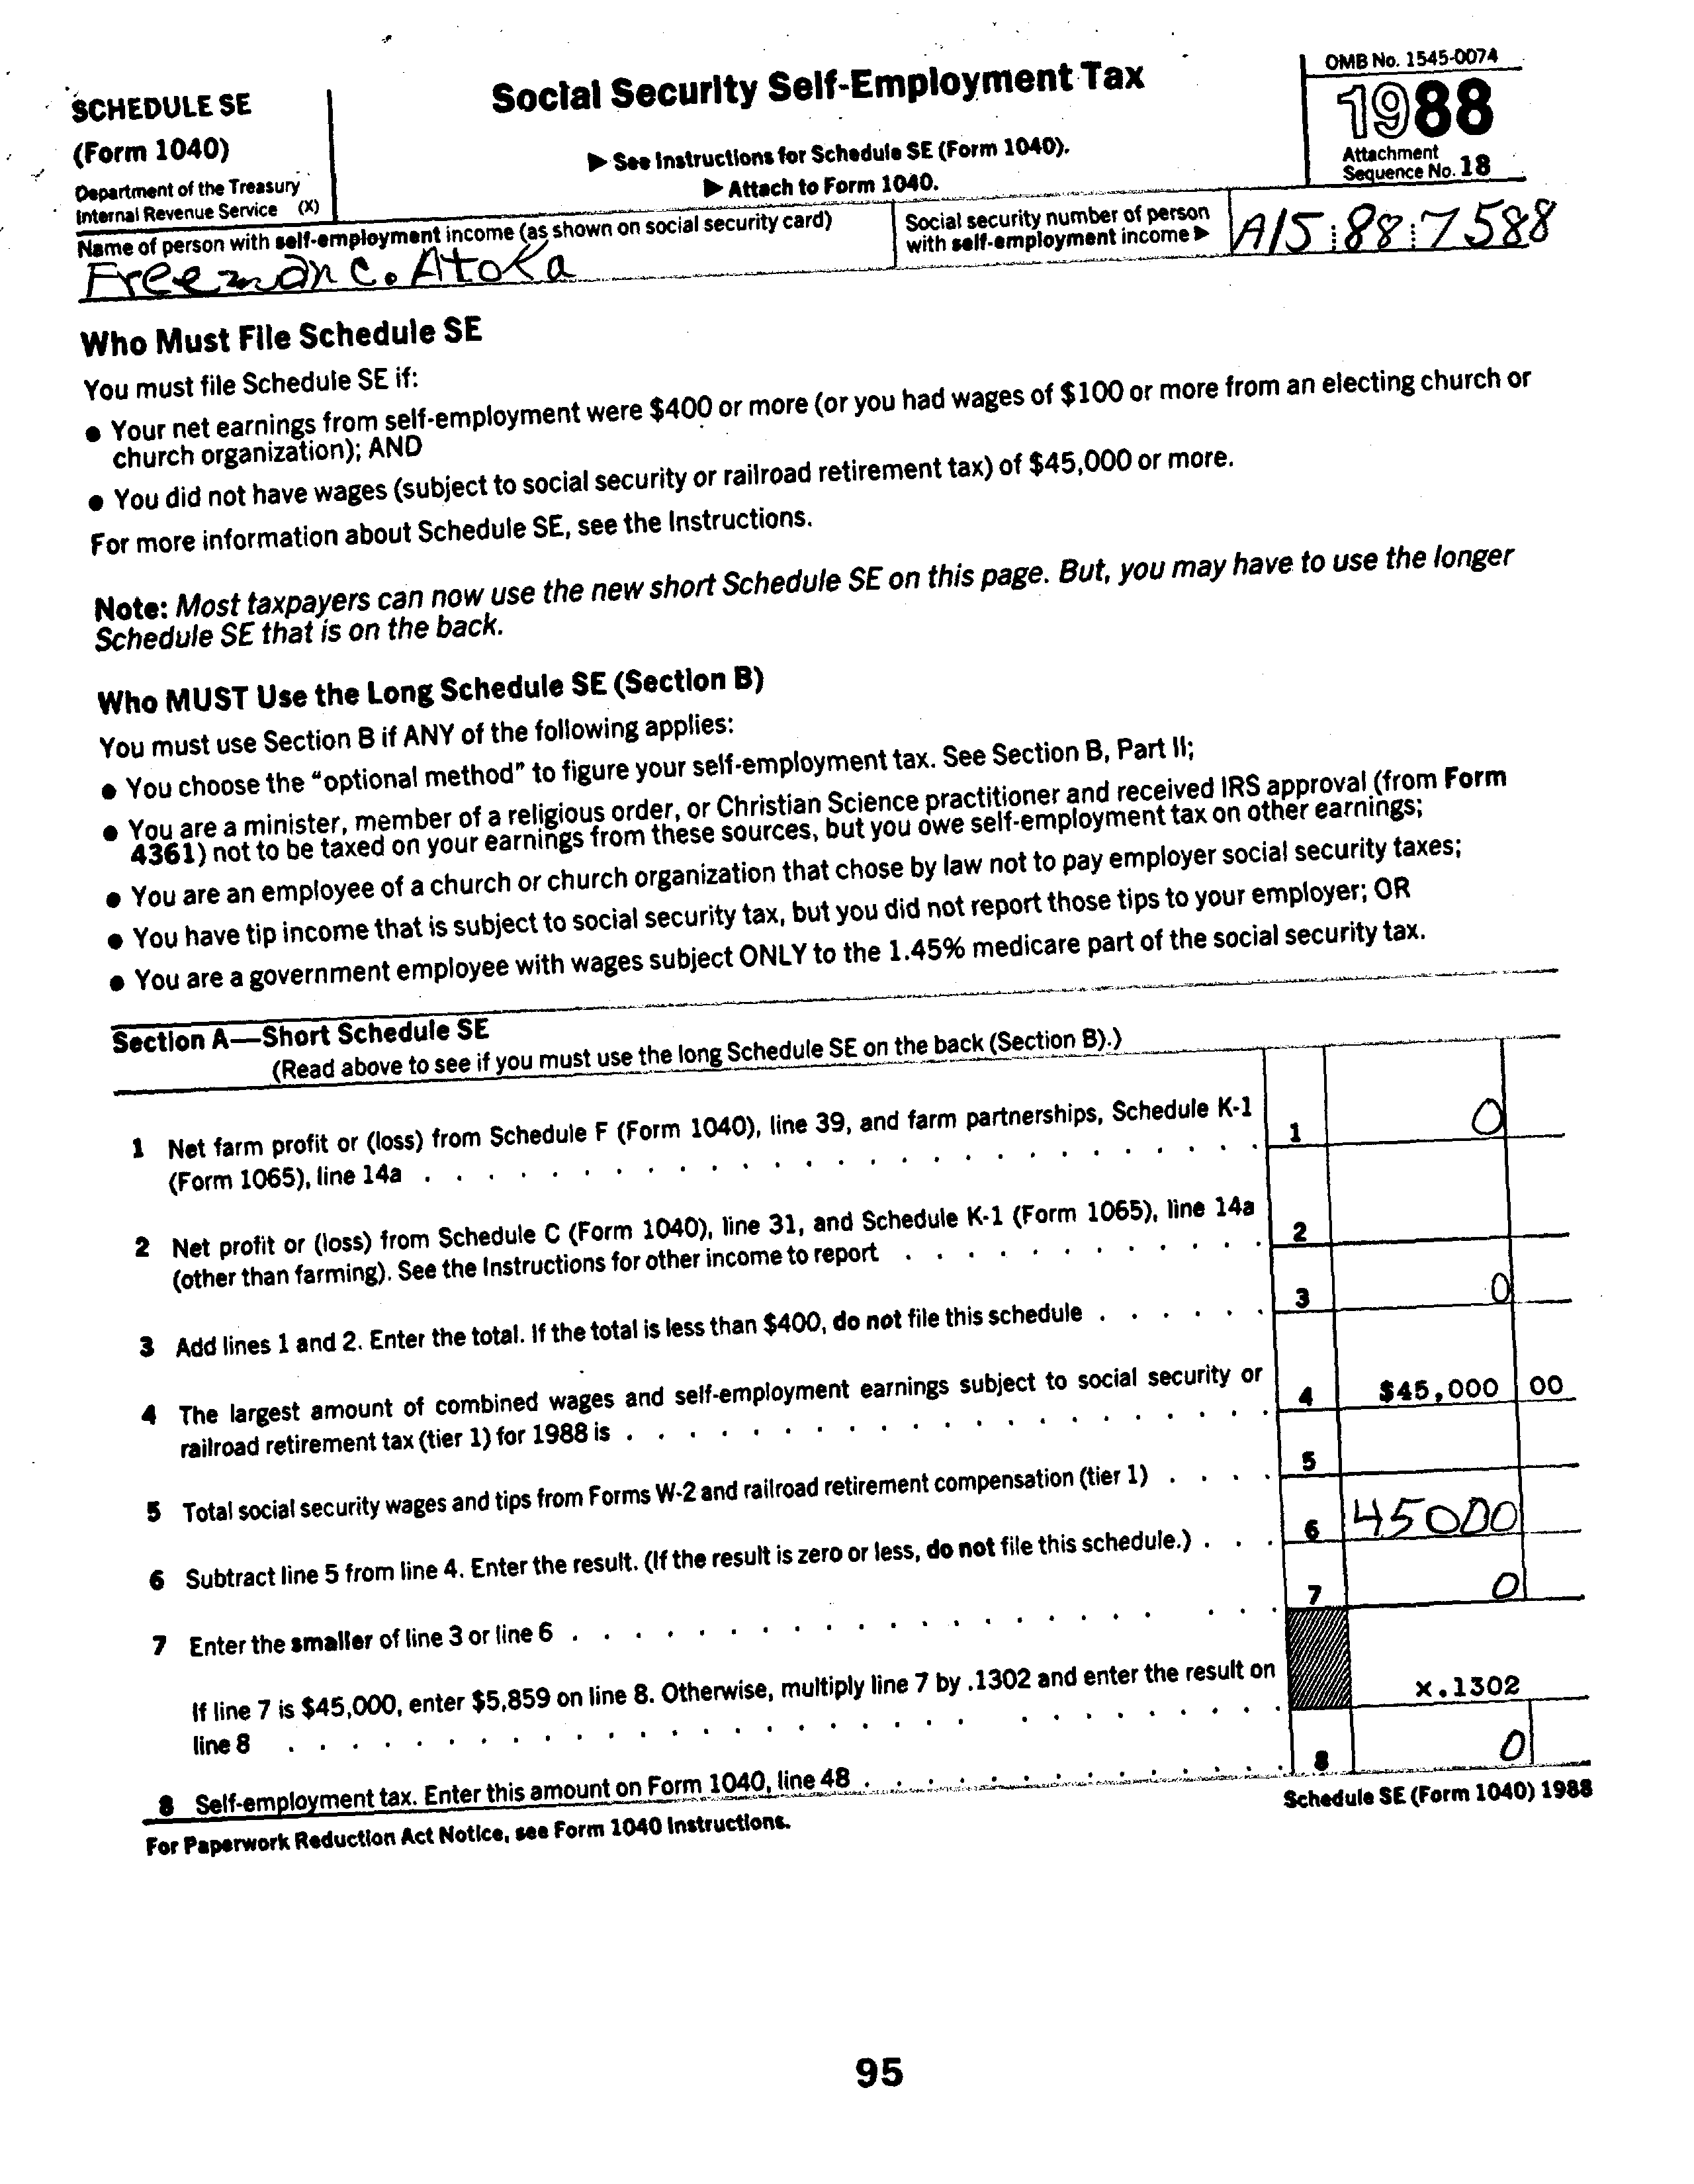 SCHEDULE SE
(Form 1040)
Department of the Treasury
Internal Revenue Service (X)
Social Security Self-Employment Tax
▶ See Instructions for Schedule SE (Form 1040).
▶ Attach to Form 1040.
OMB No. 1545-0074
1988
Attachment
Sequence No. 18
Name of person with self-employment income (as shown on social security card)
Freeman C. Atoka
Social security number of person
with self-employment income ▶
A15 88 7588
Who Must File Schedule SE
You must file Schedule SE if:
● Your net earnings from self-employment were $400 or more (or you had wages of $100 or more from an electing church or
church organization); AND
● You did not have wages (subject to social security or railroad retirement tax) of $45,000 or more.
For more information about Schedule SE, see the Instructions.
Note: Most taxpayers can now use the new short Schedule SE on this page. But, you may have to use the longer
Schedule SE that is on the back.
Who MUST Use the Long Schedule SE (Section B)
You must use Section B if ANY of the following applies:
● You choose the “optional method” to figure your self-employment tax. See Section B, Part II;
● You are a minister, member of a religious order, or Christian Science practitioner and received IRS approval (from Form
4361) not to be taxed on your earnings from these sources, but you owe self-employment tax on other earnings;
● You are an employee of a church or church organization that chose by law not to pay employer social security taxes;
● You have tip income that is subject to social security tax, but you did not report those tips to your employer; OR
● You are a government employee with wages subject ONLY to the 1.45% medicare part of the social security tax.
Section A—Short Schedule SE
(Read above to see if you must use the long Schedule SE on the back (Section B).)
1 Net farm profit or (loss) from Schedule F (Form 1040), line 39, and farm partnerships, Schedule K-1
(Form 1065), line 14a . . . . . 1 0
2 Net profit or (loss) from Schedule C (Form 1040), line 31, and Schedule K-1 (Form 1065), line 14a
(other than farming). See the Instructions for other income to report . . . . . 2
3 Add lines 1 and 2. Enter the total. If the total is less than $400, do not file this schedule . . . . . 3 0
4 The largest amount of combined wages and self-employment earnings subject to social security or
railroad retirement tax (tier 1) for 1988 is . . . . . 4 $45,000 00
5 Total social security wages and tips from Forms W-2 and railroad retirement compensation (tier 1) . . . . 5
6 Subtract line 5 from line 4. Enter the result. (If the result is zero or less, do not file this schedule.) . . . 6 45000
7 Enter the smaller of line 3 or line 6 . . . . . 7 0
If line 7 is $45,000, enter $5,859 on line 8. Otherwise, multiply line 7 by .1302 and enter the result on
line 8 . . . . . x.1302
8 Self-employment tax. Enter this amount on Form 1040, line 48 . . . . . 8 0
For Paperwork Reduction Act Notice, see Form 1040 Instructions.
Schedule SE (Form 1040) 1988
95